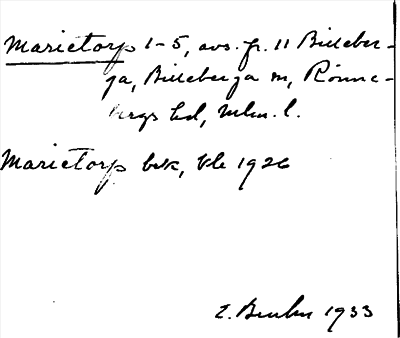 Marietorp 1-5, avs. fr. 11 Billeber-
ga, Billeberga sn, Rönne-
bergs hd, Mlm. l.
Marietorp bsk, Vb 1926
1933